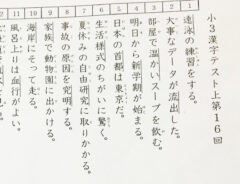 小3漢字テスト上第16回
1 遠泳の練習をする。
2 大事なデータが流出した。
3 部屋で温かいスープを飲む。
4 明日から新学期が始まる。
5 日本の首都は東京だ。
6 生活様式のちがいに驚く。
7 夏休みの自由研究に取りかかる。
8 事故の原因を究明する。
9 家族で動物園に出かける。
10 海岸にそって走る。
11 風呂上りは血行がよい。